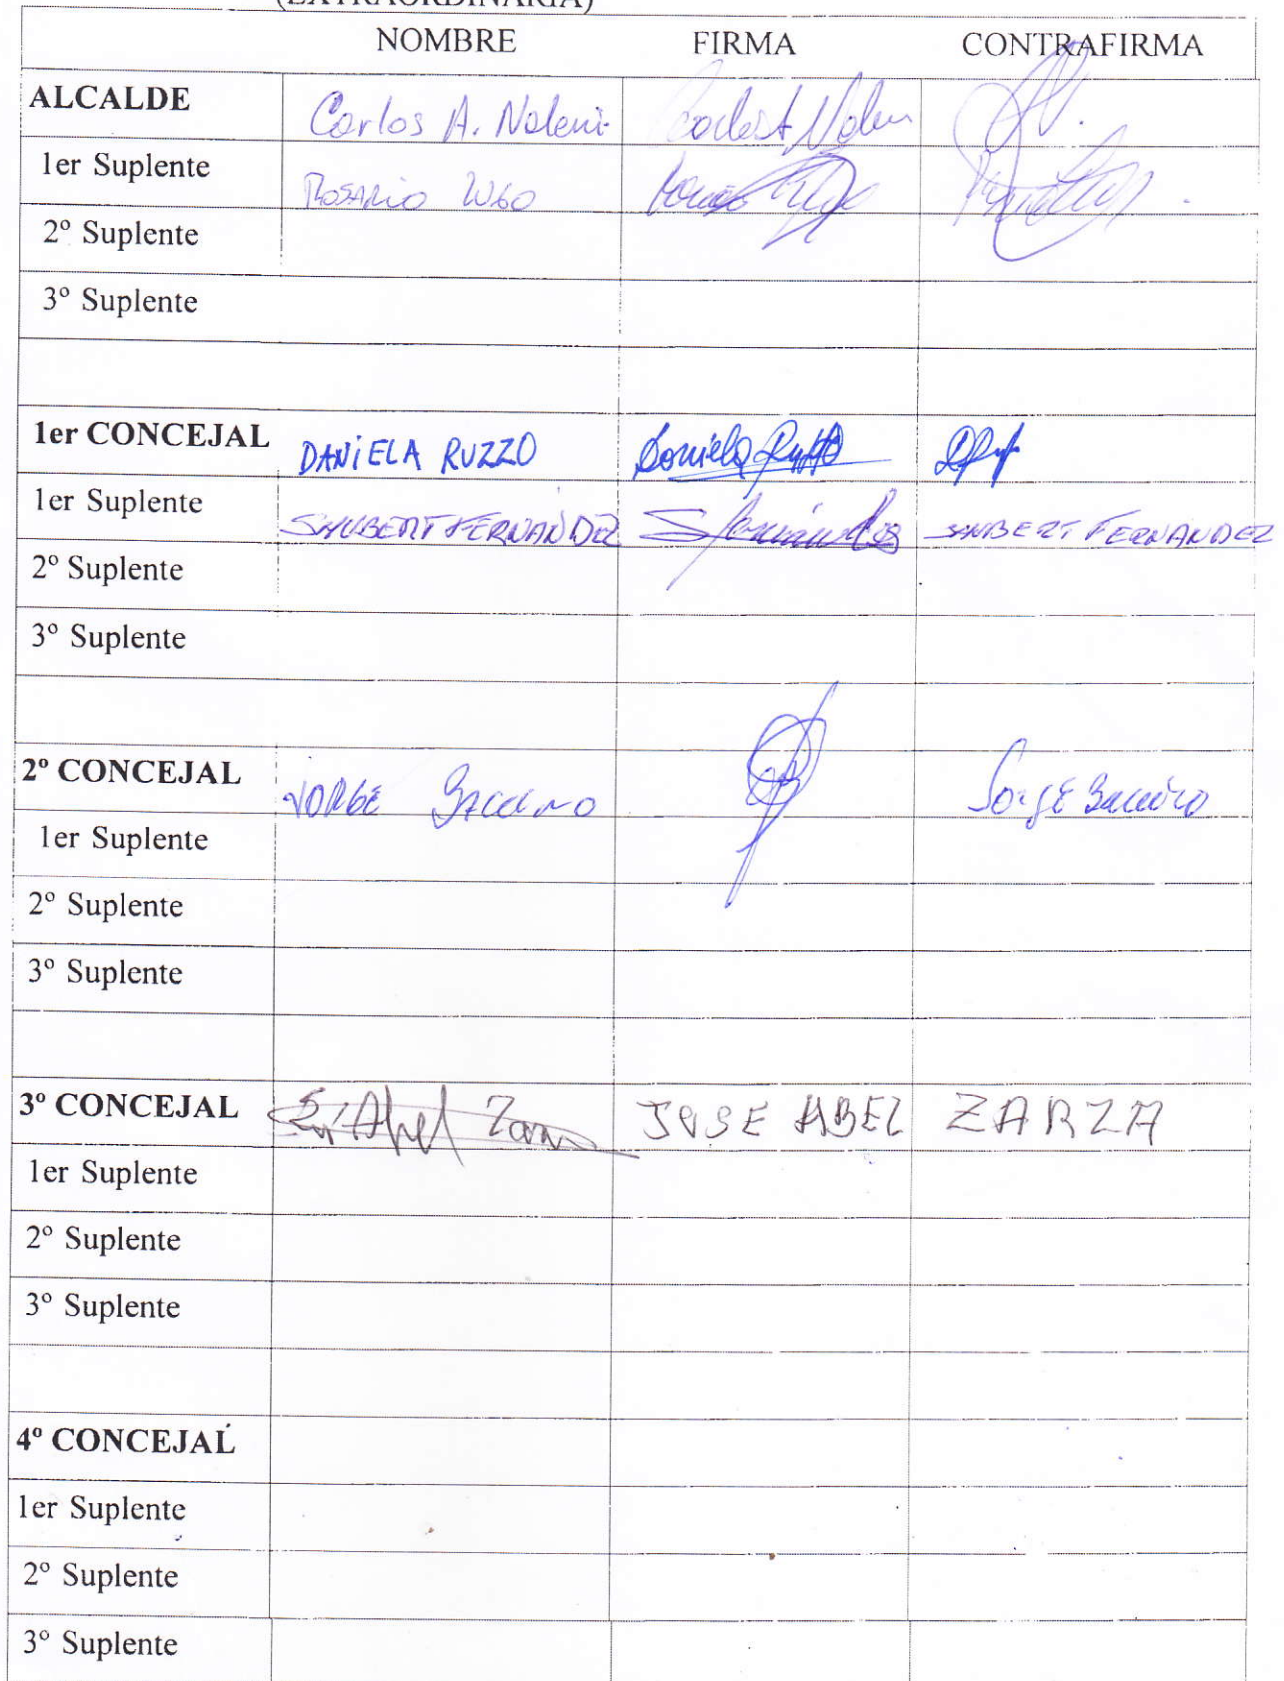 (EXTRAORDINARIA)
NOMBRE FIRMA CONTRAFIRMA
ALCALDE Carlos A. Noleni
1er Suplente Rosario
2º Suplente
3º Suplente
1er CONCEJAL DANiELA RUZZO Daniela Ruzzo
1er Suplente SHUBERT FERNANDEZ S Fernández SHUBERT FERNANDEZ
2º Suplente
3º Suplente
2º CONCEJAL JORGE JorgE
1er Suplente
2º Suplente
3º Suplente
3º CONCEJAL Abel Zarza JOSE ABEL ZARZA
1er Suplente
2º Suplente
3º Suplente
4º CONCEJAL
1er Suplente
2º Suplente
3º Suplente